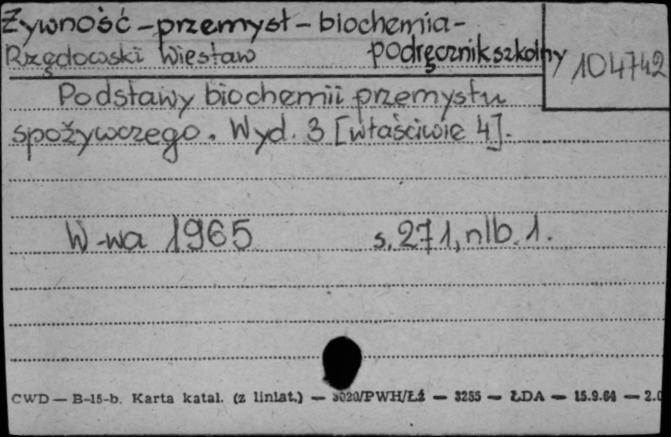 Żywność-przemysł-biochemia-
podręcznik szkolny
104742
Rzędowski Wiesław
Podstawy biochemii przemysłu
spożywczego. Wyd. 3 [właściwie 4].
W-wa 1965 s. 271, nlb. 1.
CWD — B-15-b. Karta katal. (z liniat.) — 3020/PWH/Łź — 3255 — ŁDA — 15.9.64 —